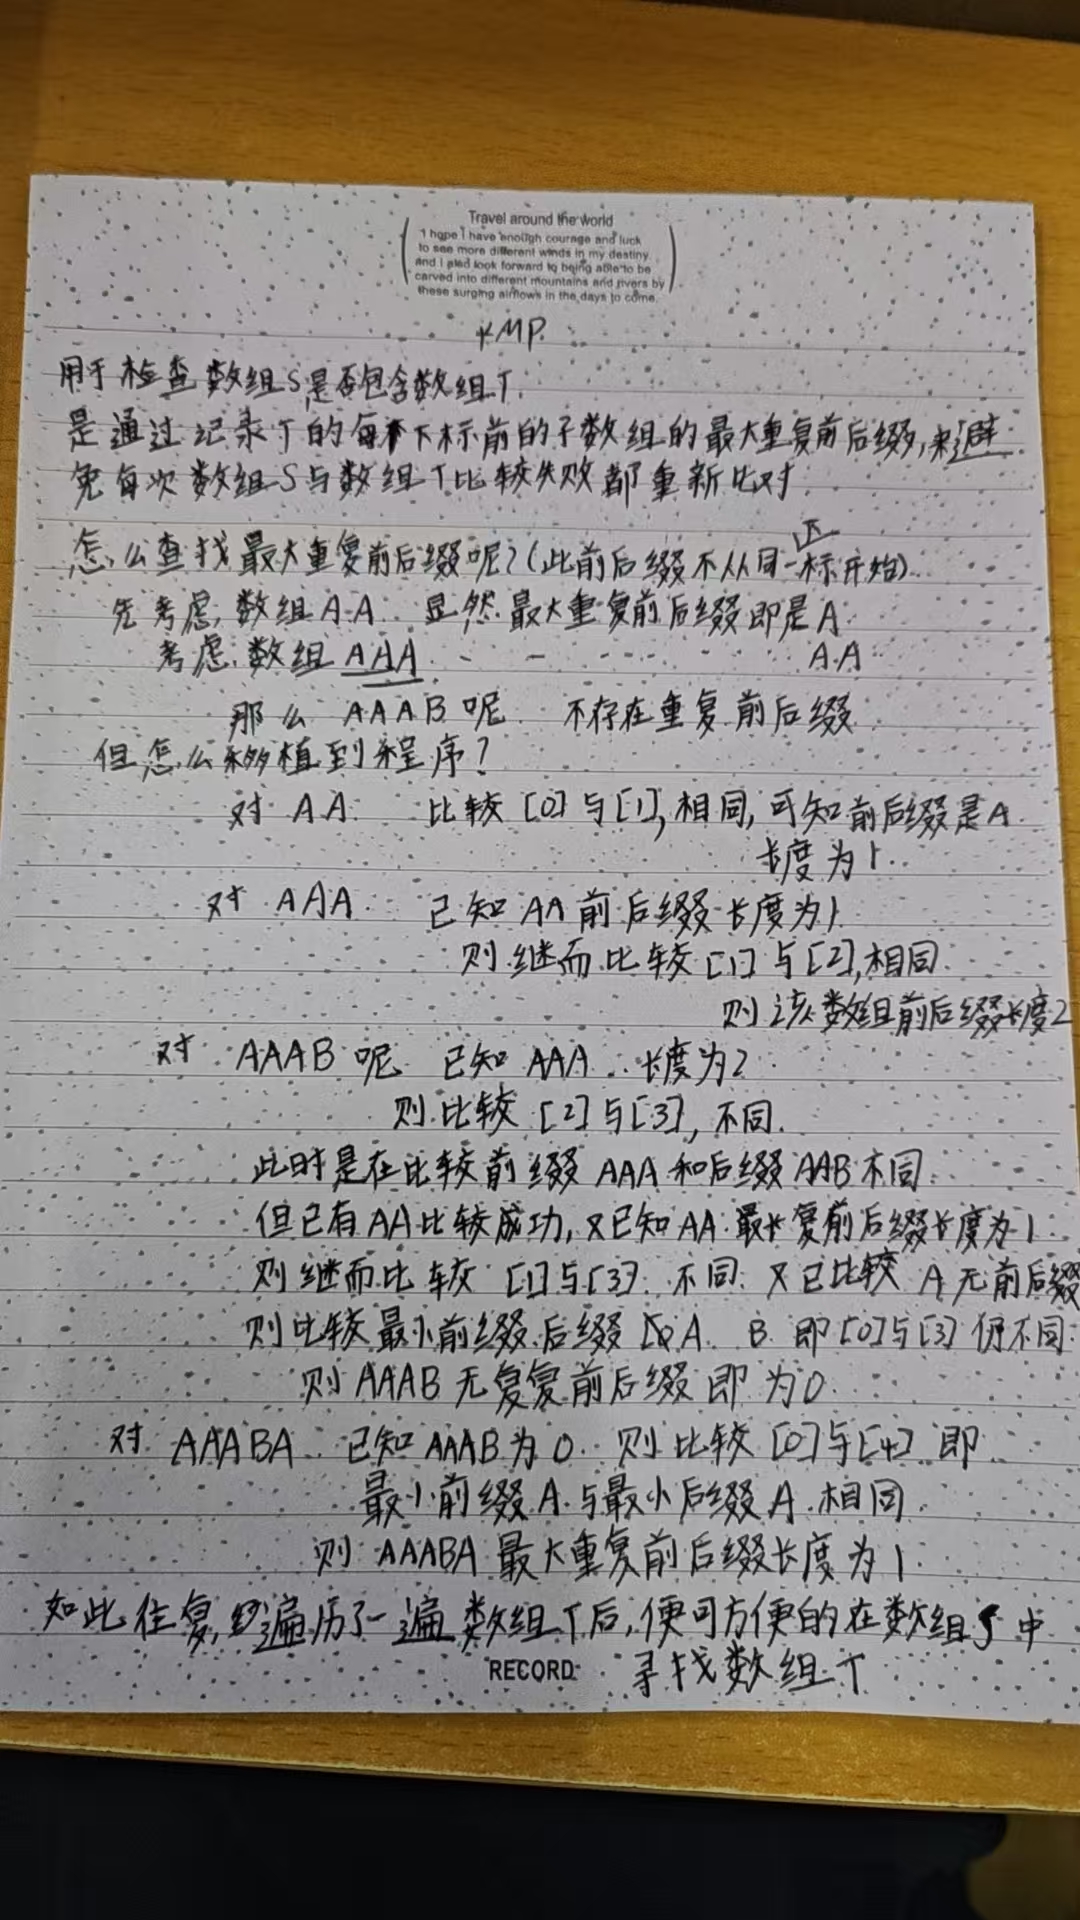 Travel around the world
I hope I have enough courage and luck
to see more different winds in my destiny
and I also look forward to being able to be
carved into different mountains and rivers by
these surging airflows in the days to come.
KMP.
用于检查数组S是否包含数组T.
是通过记录T的每个下标前的子数组的最大重复前后缀,来避
免每次数组S与数组T比较失败都重新比对
怎么查找最大重复前后缀呢?(此前后缀不从同一下标开始).
先考虑,数组AA.. 显然最大重复前后缀即是A
考虑,数组AAA - - - - - AA
那么 AAAB呢 不存在重复前后缀
但怎么移植到程序?
对 AA. 比较[0]与[1],相同,可知前后缀是A
长度为1.
对 AAA. 已知AA前后缀长度为1
则继而比较[1]与[2],相同.
则该数组前后缀长度2
对 AAAB呢 已知AAA..长度为2
则比较[2]与[3],不同.
此时是在比较前缀AAA和后缀AAB不同
但已有AA比较成功,又已知AA最长复前后缀长度为1
则继而比较[1]与[3].不同.又已比较 A无前后缀
则比较最小前缀后缀 A. B.即[0]与[3]仍不同.
则AAAB无复复前后缀即为0.
对 AAABA..已知AAAB为0..则比较[0]与[4]即
最小前缀A.与最小后缀A.相同.
则AAABA最大重复前后缀长度为1.
如此往复,遍历了一遍数组T后,便可方便的在数组S中
寻找数组T
RECORD